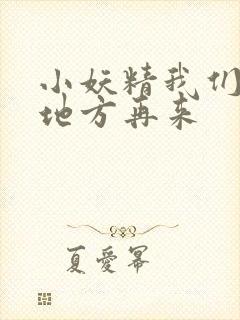 小妖精我们
地方再来
夏爱幂